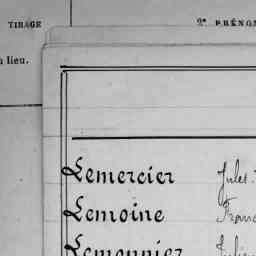 TIRAGE 2e PRÉNO
lieu.
Lemercier Jules
Lemoine Franc
Lemonnier Julien